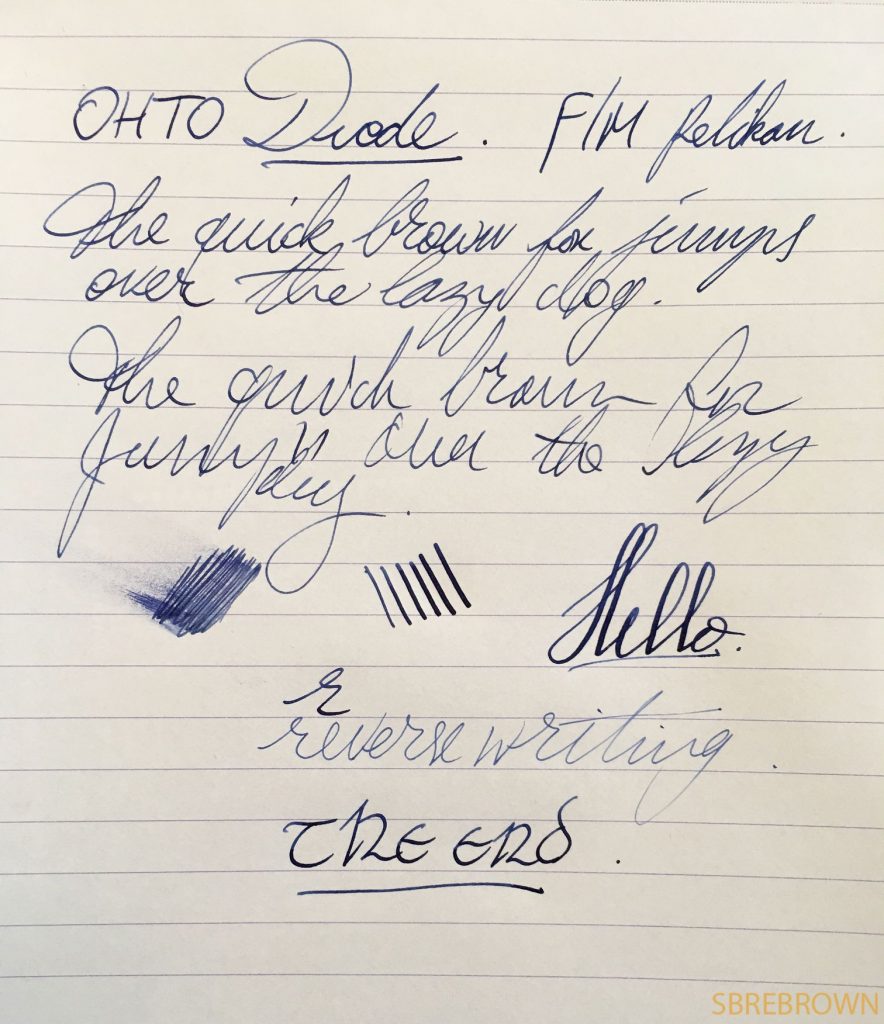 OHTO Diode. F/M Pelikan.
The quick brown fox jumps
over the lazy dog.
The quick brown fox
jumps over the lazy
dog.
Hello.
r
reverse writing.
THE END.
SBREBROWN